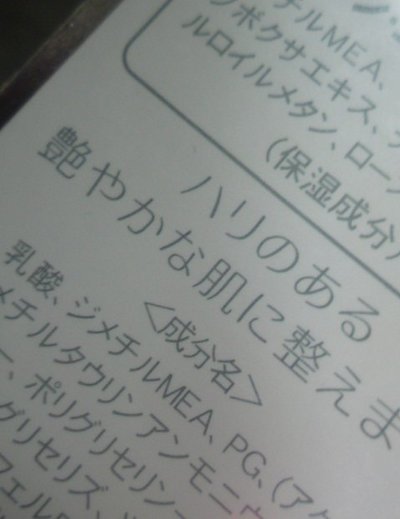 チルMEA、
ソボクサエキス、
ルロイルメタン、ロー
(保湿成分)
ハリのある
艶やかな肌に整えま
<成分名>
乳酸、ジメチルMEA、PG、(アク
メチルタウリンアンモニウ
ー、ポリグリセリン
グリセリズ、
フェル